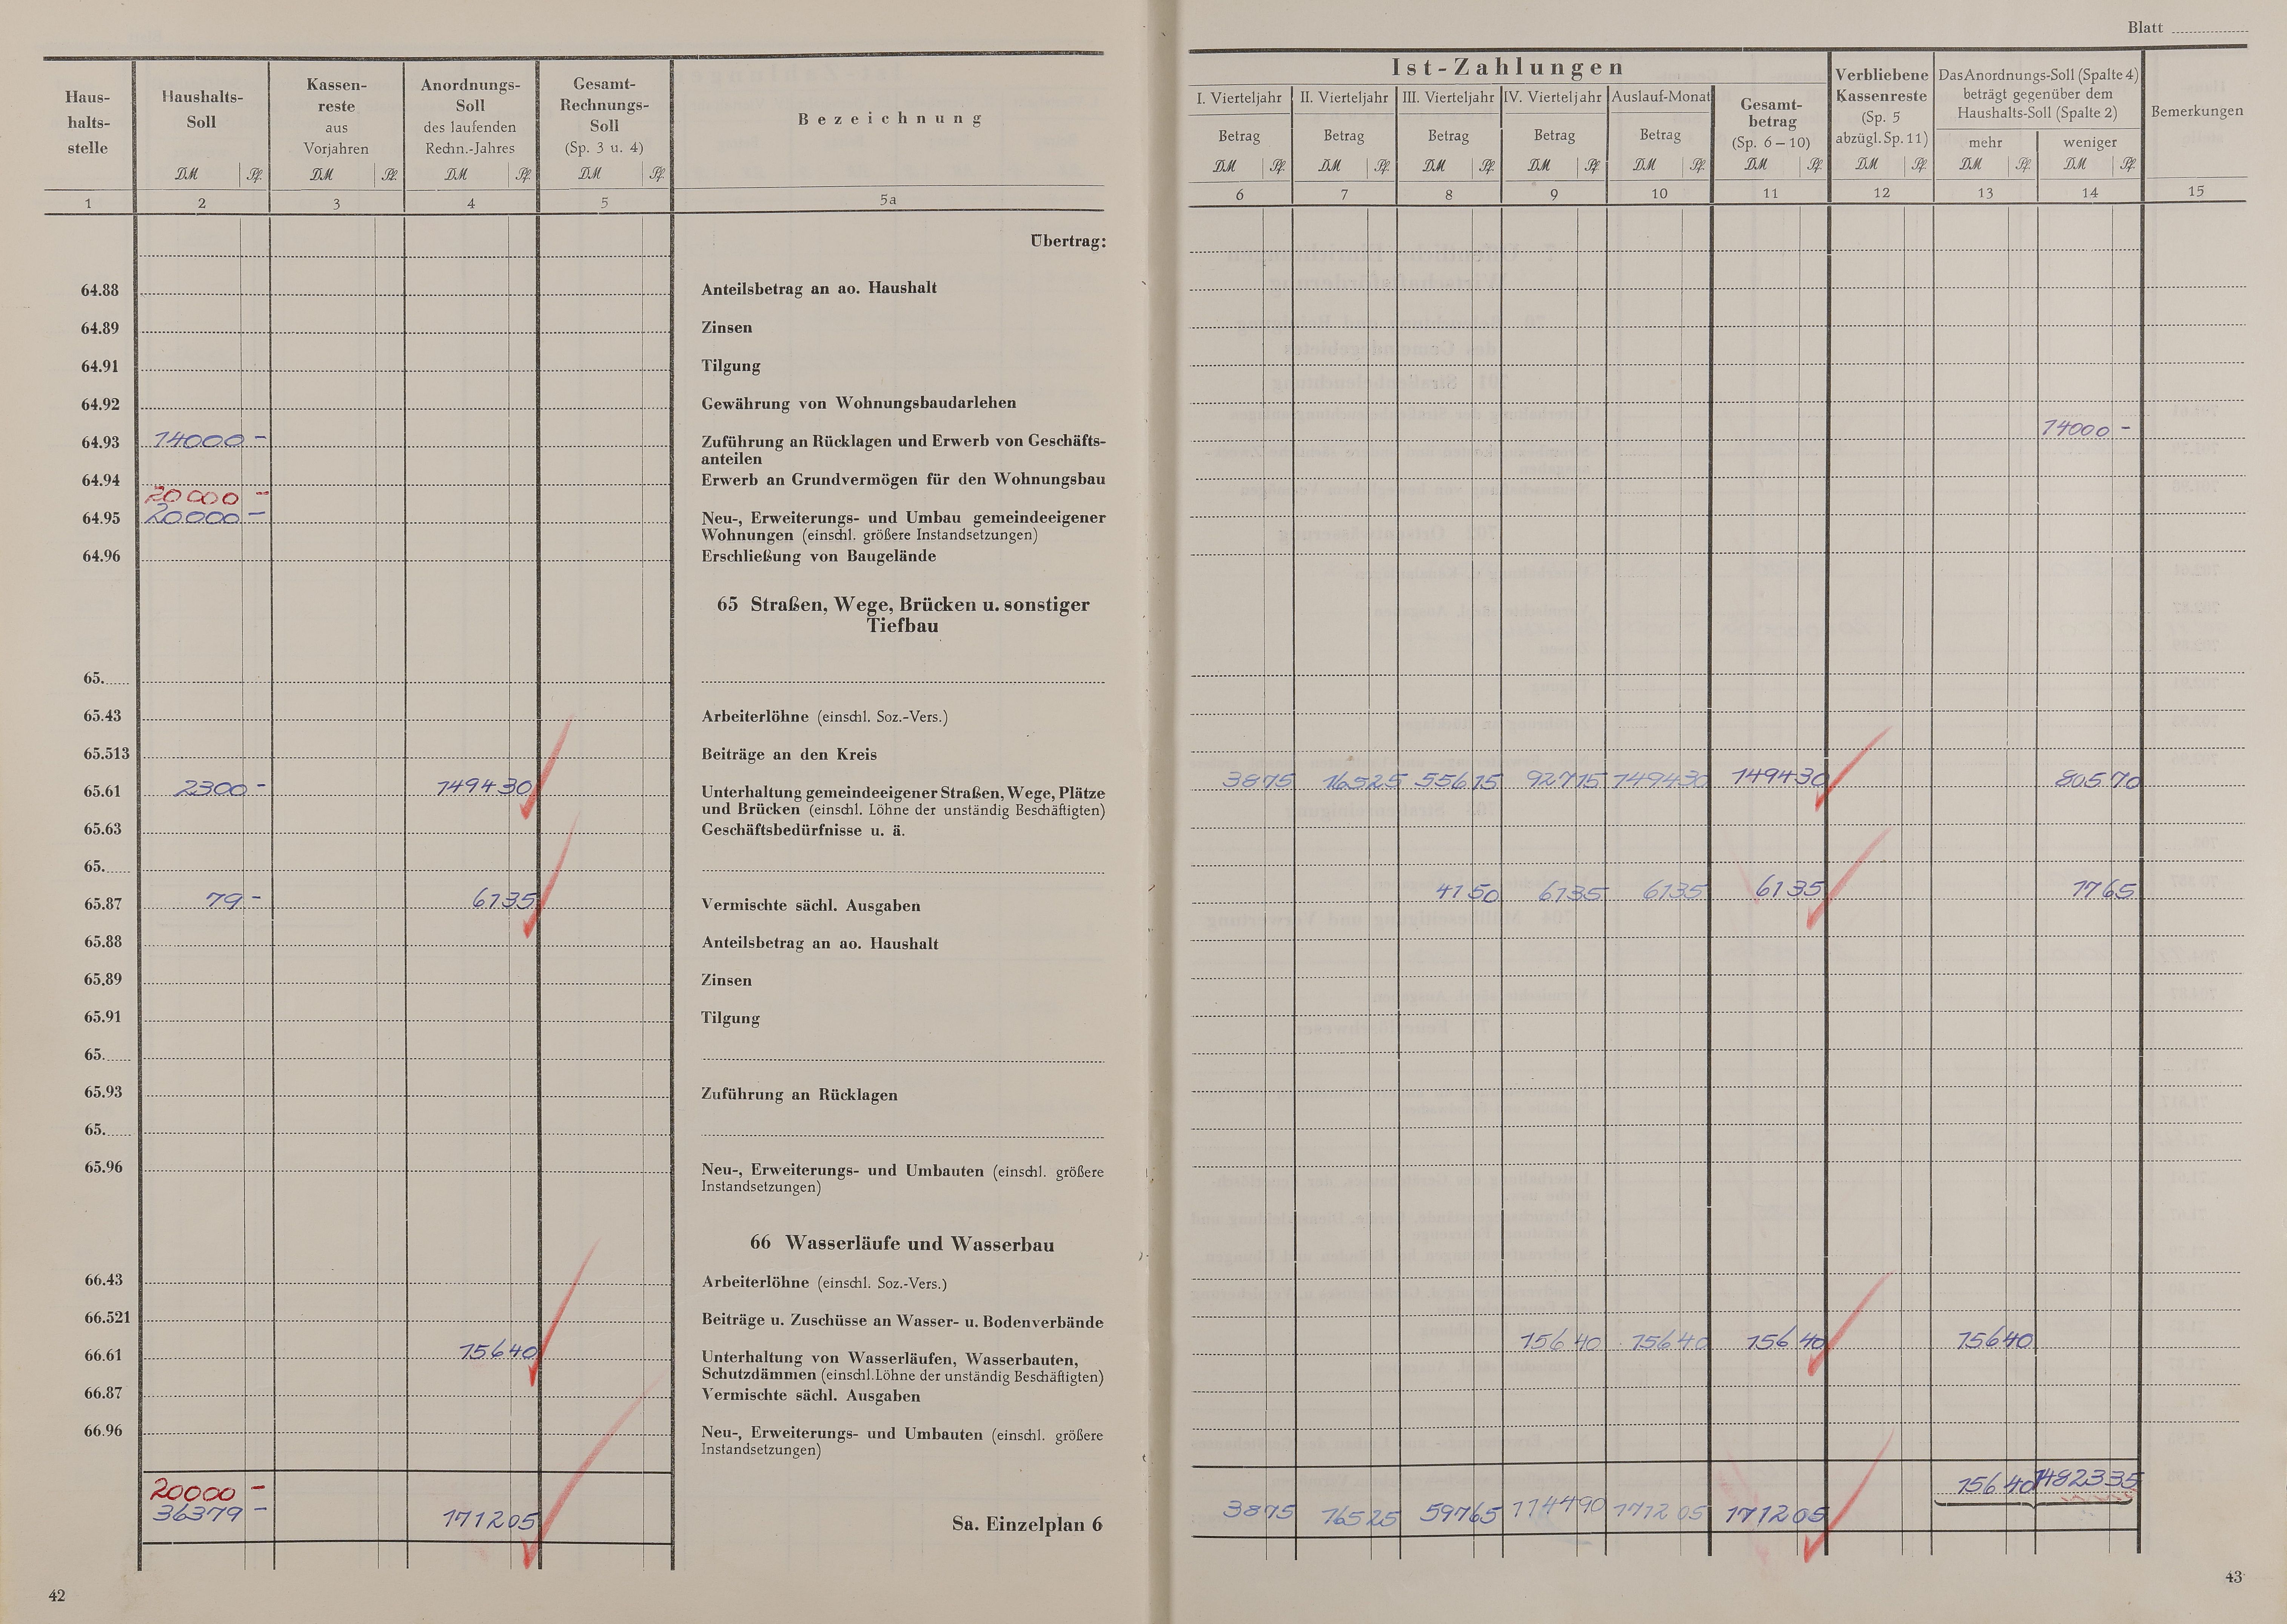 Blatt
Haus-
halts-
stelle
Haushalts-
Soll
DM Pf.
Kassen-
reste
aus
Vorjahren
DM Pf.
Anordnungs-
Soll
des laufenden
Rechn.-Jahres
DM Pf.
Gesamt-
Rechnungs-
Soll
(Sp. 3 u. 4)
DM Pf.
Bezeichnung
Ist-Zahlungen
I. Vierteljahr II. Vierteljahr III. Vierteljahr IV. Vierteljahr Auslauf-Monat
Betrag Betrag Betrag Betrag Betrag
DM Pf. DM Pf. DM Pf. DM Pf. DM Pf.
Gesamt-
betrag
(Sp. 6–10)
DM Pf.
Verbliebene
Kassenreste
(Sp. 5
abzügl. Sp. 11)
DM Pf.
Das Anordnungs-Soll (Spalte 4)
beträgt gegenüber dem
Haushalts-Soll (Spalte 2)
mehr weniger
DM Pf. DM Pf.
Bemerkungen
1 2 3 4 5 5a 6 7 8 9 10 11 12 13 14 15
Übertrag:
64.88 Anteilsbetrag an ao. Haushalt
64.89 Zinsen
64.91 Tilgung
64.92 Gewährung von Wohnungsbaudarlehen
64.93 14000 – Zuführung an Rücklagen und Erwerb von Geschäfts- 14000 –
anteilen
64.94 Erwerb an Grundvermögen für den Wohnungsbau
20000 –
64.95 20000 – Neu-, Erweiterungs- und Umbau gemeindeeigener
Wohnungen (einschl. größere Instandsetzungen)
64.96 Erschließung von Baugelände
65 Straßen, Wege, Brücken u. sonstiger
Tiefbau
65.
65.43 Arbeiterlöhne (einschl. Soz.-Vers.)
65.513 Beiträge an den Kreis
65.61 2300 – 1494 30 Unterhaltung gemeindeeigener Straßen, Wege, Plätze 38 75 165 25 556 15 927 15 1494 30 1494 30 805 70
und Brücken (einschl. Löhne der unständig Beschäftigten)
65.63 Geschäftsbedürfnisse u. ä.
65.
65.87 79 – 61 35 Vermischte sächl. Ausgaben 41 50 61 35 61 35 61 35 17 65
65.88 Anteilsbetrag an ao. Haushalt
65.89 Zinsen
65.91 Tilgung
65.
65.93 Zuführung an Rücklagen
65.
65.96 Neu-, Erweiterungs- und Umbauten (einschl. größere
Instandsetzungen)
66 Wasserläufe und Wasserbau
66.43 Arbeiterlöhne (einschl. Soz.-Vers.)
66.521 Beiträge u. Zuschüsse an Wasser- u. Bodenverbände
66.61 156 40 Unterhaltung von Wasserläufen, Wasserbauten, 156 40 156 40 156 40 156 40
Schutzdämmen (einschl. Löhne der unständig Beschäftigten)
66.87 Vermischte sächl. Ausgaben
66.96 Neu-, Erweiterungs- und Umbauten (einschl. größere
Instandsetzungen)
20000 – 156 40 14823 35
36379 – 1712 05 Sa. Einzelplan 6 38 75 165 25 597 65 1144 90 1712 05 1712 05
42
43